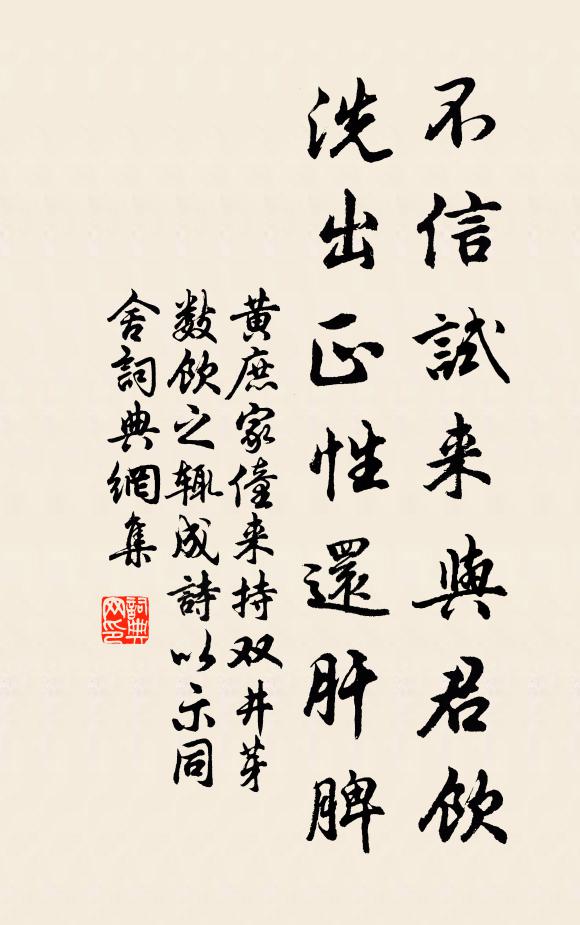 不信試来與君飲
洗出正性還肝脾
黄庶家僮来持双井芽
数飲之輙成詩以示同
舍詞典網集
詞典网印